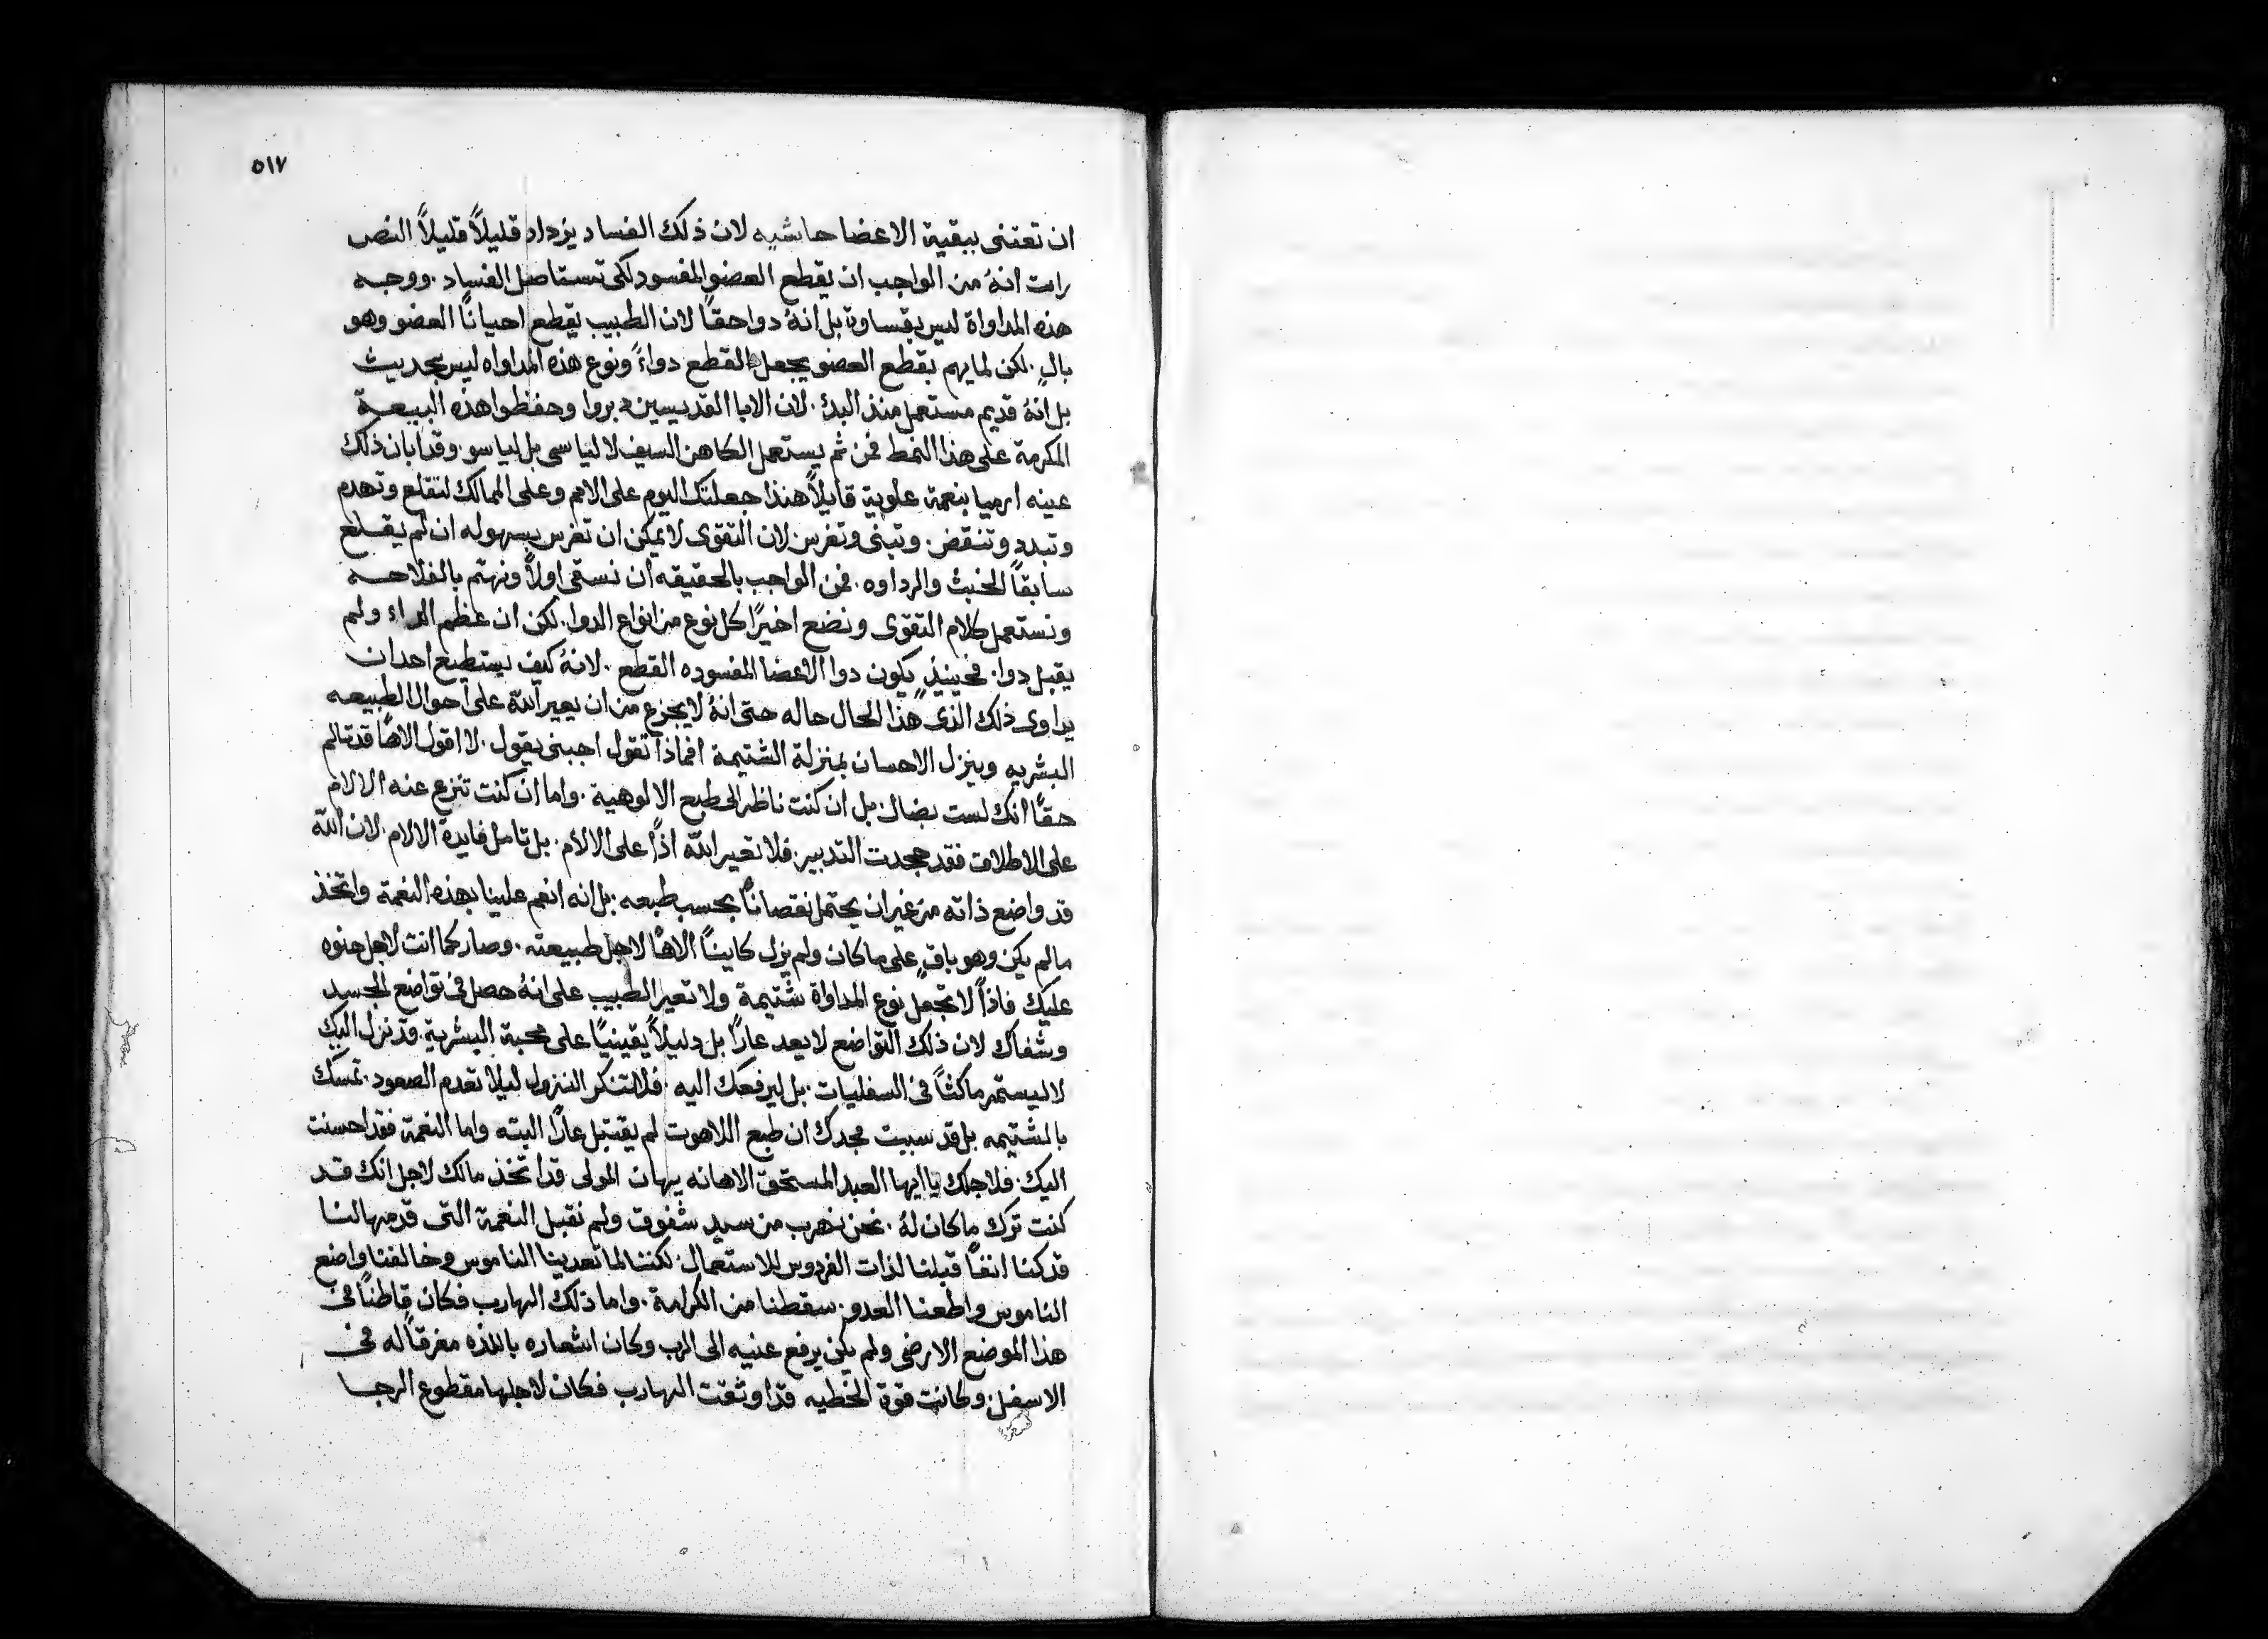 ٥١٧
ان تعتنى ببقية الاعضا حاشيه لان ذلك الفساد يزداد قليلاً قليلاً النص
رات انهُ من الواجب ان يقطع العضو المفسود لكى تستاصل الفساد . ووجه
هذه المداواة ليس بقساوة بل انهُ دوا حقاً لان الطبيب يقطع احياناً العضو وهو
بالٍ . لكن لما يهم بقطع العضو يجعل القطع دواءً ونوع هذه المداواه ليس بحديث
بل انهُ قديم مستعمل منذ البدء . لان الابا القديسين دبروا وحفظوا هذه البيعة
المكرمة على هذا النمط فمن ثم يستعمل الكاهن السيف لا لياسى بل لياسو . وقد ابان ذلك
عينه ارميا بنعمة علوية قايلاً هنذا جعلتك اليوم على الامم وعلى الممالك لتقلع وتهدم
وتبدد وتنقض . وتبنى وتغرس . لان التقوى لا يمكن ان تغرس بسهوله ان لم يقلع
سابقاً الخبث والرداوه . فمن الواجب بالحقيقه ان نسقى اولاً ونهتم بالفلاحه
ونستعمل كلام التقوى ونضع اخيراً كل نوع من انواع الدوا . لكن ان عظم الداء ولم
يقبل دوا . فحينيذٍ يكون دوا الاعضا المفسوده القطع . لانهُ كيف يستطيع احد ان
يداوى ذلك الذى هذا الحال حاله حتى انهُ لا يجزع من ان يعير الله على احوال الطبيعه
البشريه وينزل الاحسان بمنزلة الشتيمة افماذا تقول اجبنى يقول . لا اقول الاهاً قد تالم
حقاً انك لست بضال . بل ان كنت ناظر الى طبع الالوهية . واما ان كنت تنزع عنه الالام
على الاطلاق فقد جحدت التدبير . فلا تعير الله اذاً على الالام . بل تامل فايدة الالام . لان الله
قد واضع ذاته من غير ان يحتمل نقصاناً بحسب طبعه . بل انه انعم علينا بهذه النعمة واتخذ
ما لم يكن وهو باقٍ على ما كان ولم يزل كايناً الاهاً لاجل طبيعته . وصار كما انت لاجل حنوه
عليك فاذاً لا تجعل نوع المداواة شتيمة ولا تعير الطبيب على انهُ حصل فى تواضع الجسد
وشفاك لان ذلك التواضع لا يعد عاراً بل دليلاً يقينياً على محبة البشرية . قد نزل اليك
لا ليستمر ماكثاً فى السفليات . بل ليرفعك اليه . فلا تنكر النزول ليلا تعدم الصعود . تمسك
بالشتيمه بل قد سبيت مجدك ان طبع اللاهوت لم يقتبل عاراً البته واما النعمة فقد احسنت
اليك . فلاجلك يا ايها العبد المستحق الاهانه يهان المولى قد اتخذ مالك لاجل انك قد
كنت ترك ما كان لهُ . نحن نهرب من سيدٍ شفوق ولم نقبل النعمة التى قدمها لنا
قد كنا انفاً قبلنا لذات الفردوس للاستعمال . لكننا لما تعدينا الناموس وخالفنا واضع
الناموس واطعنا العدو . سقطنا من الكرامة . واما ذلك الهارب فكان قاطناً فى
هذا الموضع الارضى ولم يكن يرفع عنيه الى الرب وكان اشعاره باللذه مغرقاً له فى
الاسفل . وكانت قوة الخطيه قد اوثقت الهارب فكان لاجلها مقطوع الرجا